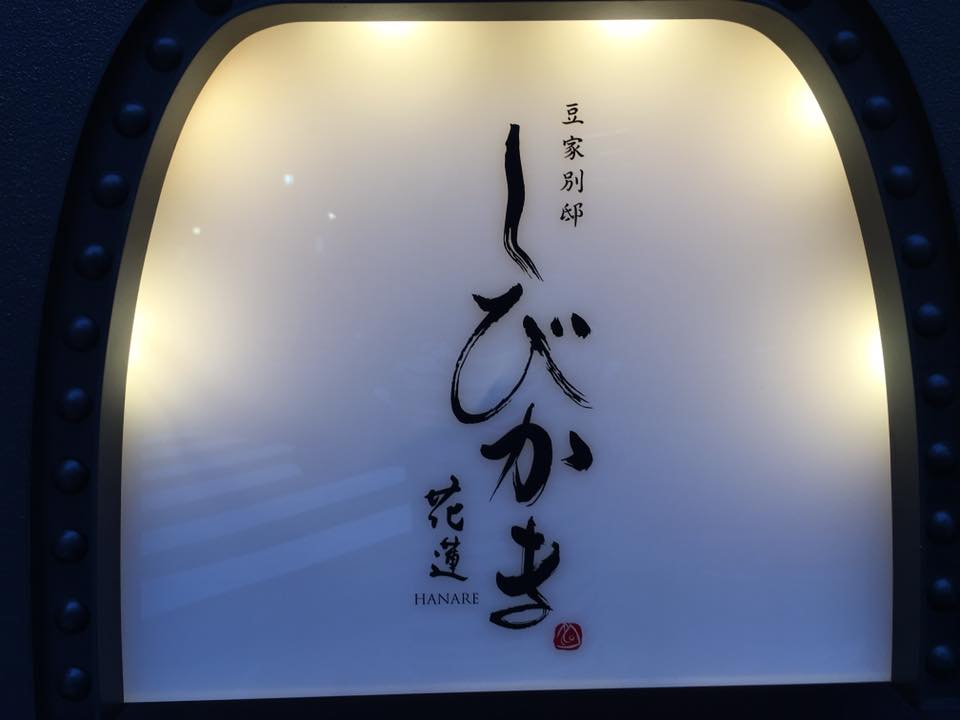 豆家別邸
しびかま
花蓮
HANARE